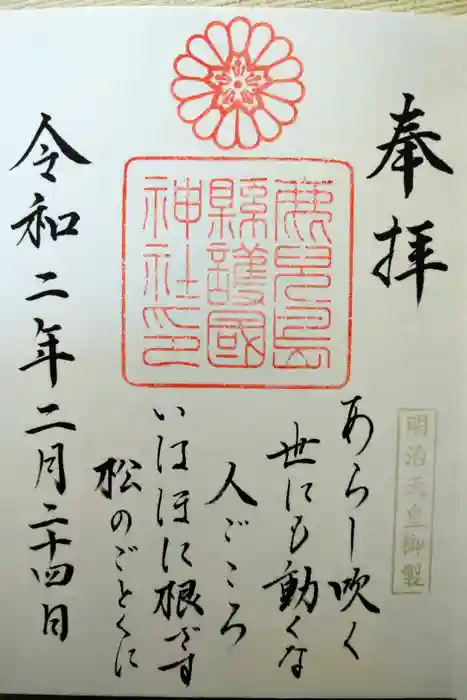 奉拝
明治天皇御製
鹿児島
縣護國
神社印
あらし吹く
世にも動くな
人ごころ
いはほに根ざす
松のごとくに
令和二年二月二十四日